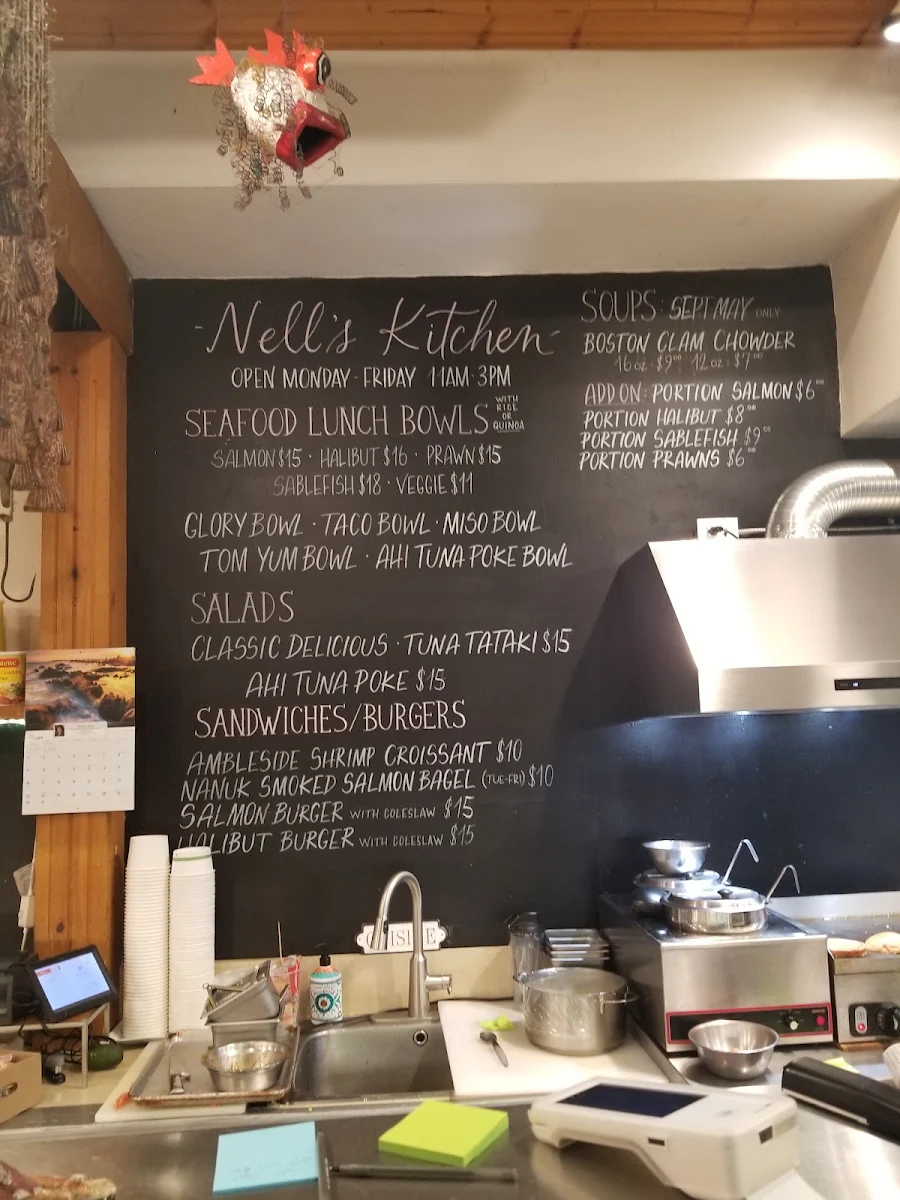 - Nell's Kitchen -
OPEN MONDAY - FRIDAY 11AM-3PM
SEAFOOD LUNCH BOWLS WITH RICE OR QUINOA
SALMON $15 · HALIBUT $16 · PRAWN $15
SABLEFISH $18 · VEGGIE $11
GLORY BOWL · TACO BOWL · MISO BOWL
TOM YUM BOWL · AHI TUNA POKE BOWL
SALADS
CLASSIC DELICIOUS · TUNA TATAKI $15
AHI TUNA POKE $15
SANDWICHES/BURGERS
AMBLESIDE SHRIMP CROISSANT $10
NANUK SMOKED SALMON BAGEL (TUE-FRI) $10
SALMON BURGER WITH COLESLAW $15
HALIBUT BURGER WITH COLESLAW $15
SOUPS: SEPT-MAY ONLY
BOSTON CLAM CHOWDER
16oz: $9⁰⁰ 12oz: $7⁰⁰
ADD ON: PORTION SALMON $6⁰⁰
PORTION HALIBUT $8⁰⁰
PORTION SABLEFISH $9⁰⁰
PORTION PRAWNS $6⁰⁰